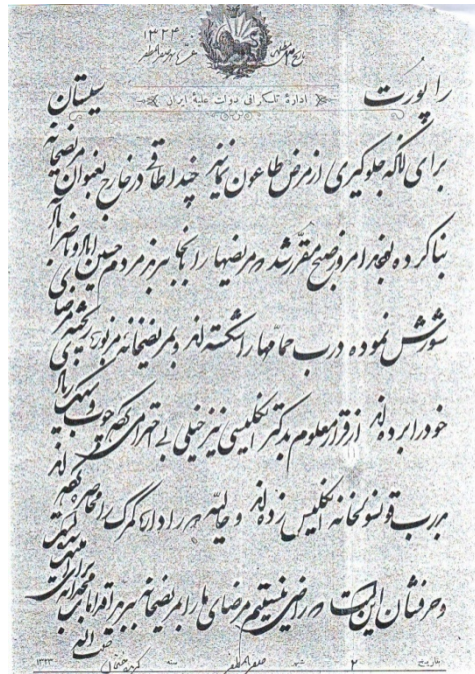 ۱۳۲۴
ادارهٔ تلگرافی دولت علیهٔ ایران
راپورت سیستان
برای آنکه جلوگیری از مرض طاعون نمایند چند اطاقی در خارج بعنوان مریضخانه
بنا کرده بودند امروز صبح مقرر شد مریضها را بآنجا ببرند مردم حسین آباد و ناصرآباد
شورش نموده درب حمامها را شکسته اند و بمریضخانه مزبور ریخته مرضای
خود را برده اند از قرار معلوم بدکتر انگلیسی نیز خیلی بی احترامی کرده چوب و سنگ زیاد
بدرب قونسولخانه انگلیس زده اند و حالیه اداره گمرک را محاصره کرده اند
و حرفشان این است راضی نیستیم مرضای ما را بمریضخانه ببرند
بتاریخ ۲ شهر صفر المظفر سنه ۱۳۲۳